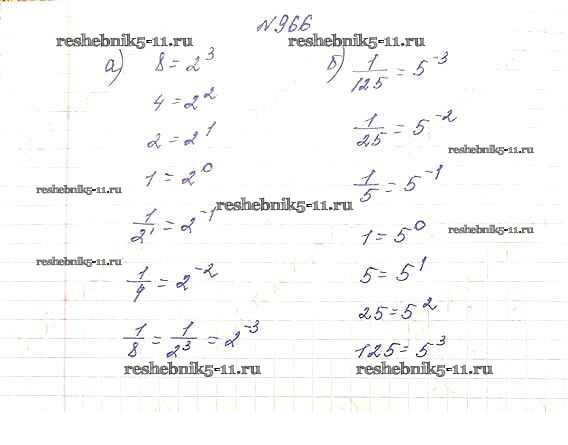 №966
reshebnik5-11.ru reshebnik5-11.ru
а) 8 = 2³
4 = 2²
2 = 2¹
1 = 2⁰
1/2¹ = 2⁻¹
1/4 = 2⁻²
1/8 = 1/2³ = 2⁻³
б) 1/125 = 5⁻³
1/25 = 5⁻²
1/5 = 5⁻¹
1 = 5⁰
5 = 5¹
25 = 5²
125 = 5³
reshebnik5-11.ru
reshebnik5-11.ru
reshebnik5-11.ru
reshebnik5-11.ru
reshebnik5-11.ru
reshebnik5-11.ru reshebnik5-11.ru